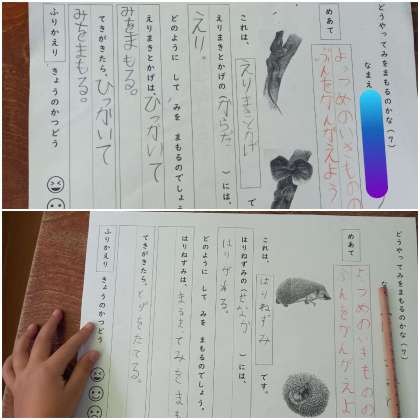 どうやってみをまもるのかな(?)
なまえ
めあて
よっつめのいきものの
ぶんをかんがえよう
これは、
えりまきとかげ
で
えりまきとかげの(からだ)には、
えり。
どのように して みを まもるのでしょう
えりまきとかげは、ひっかいて
みをまもる。
てきがきたら、ひっかいて
みをまもる。
ふりかえり きょうのかつどう
どうやってみをまもるのかな(?)
な
めあて
よっつめのいきものの
ぶんをかんがえよ
これは、
はりねずみ
です。
はりねずみの(せなか)には、
はりがある。
どのように して みを まもるのでしょう。
はりねずみは、まるまってみをまも
てきがきたら、
をたてる。
ふりかえり きょうのかつどう